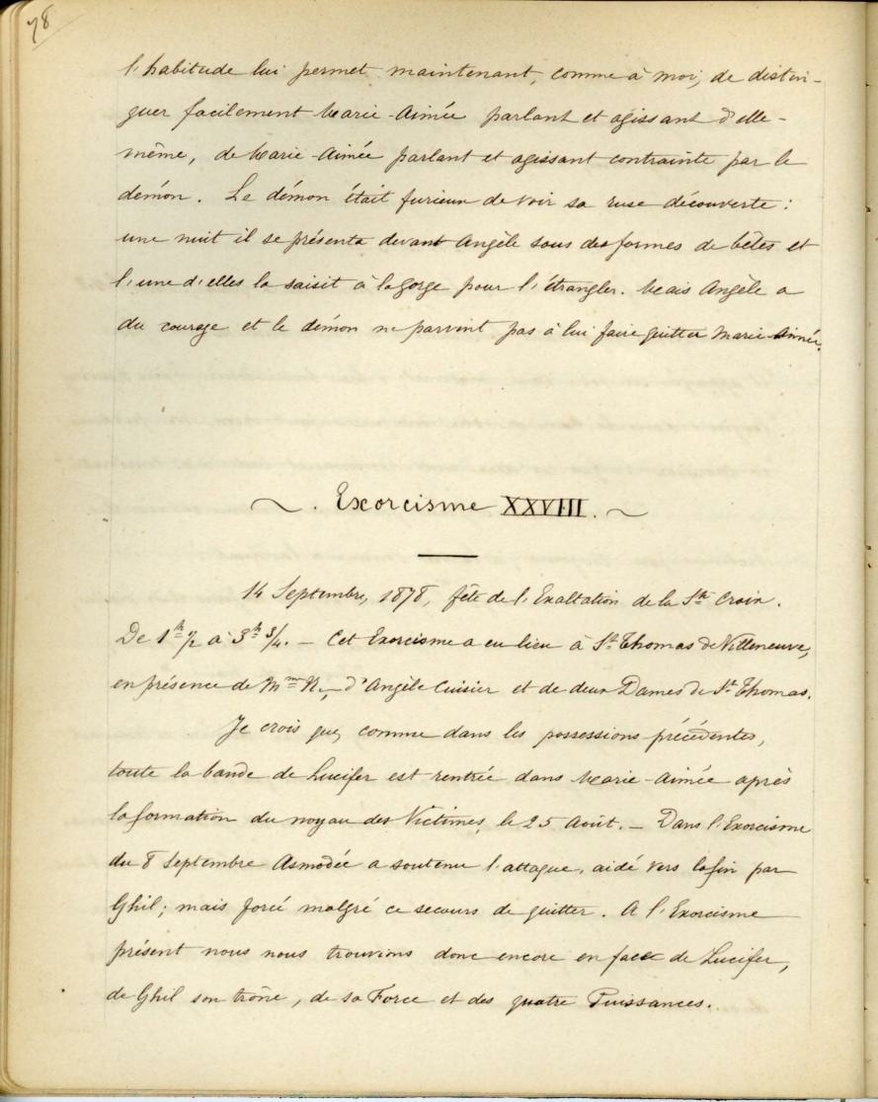 78
l'habitude lui permet maintenant, comme à moi, de distin-
guer facilement Marie-Aimée parlant et agissant d'elle-
même, de Marie-Aimée parlant et agissant contrainte par le
démon. Le démon était furieux de voir sa ruse découverte :
une nuit il se présenta devant Angèle sous des formes de bêtes et
l'une d'elles la saisit à la gorge pour l'étrangler. Mais Angèle a
du courage et le démon ne parvint pas à lui faire quitter Marie-Aimée.
~ . Exorcisme XXVIII. ~
14 Septembre, 1878, fête de l'Exaltation de la Ste Croix.
De 1h ½ à 3h ¾. — Cet Exorcisme a eu lieu à St Thomas de Villeneuve,
en présence de Mme N., d'Angèle Cuisier et de deux Dames de St Thomas.
Je crois que, comme dans les possessions précédentes,
toute la bande de Lucifer est rentrée dans Marie-Aimée après
la formation du noyau des Victimes, le 25 Août. — Dans l'Exorcisme
du 8 Septembre Asmodée a soutenu l'attaque, aidé vers la fin par
Ghil ; mais forcé malgré ce secours de quitter. A l'Exorcisme
présent nous nous trouvions donc encore en face de Lucifer,
de Ghil son trône, de sa Force et des quatre Puissances.